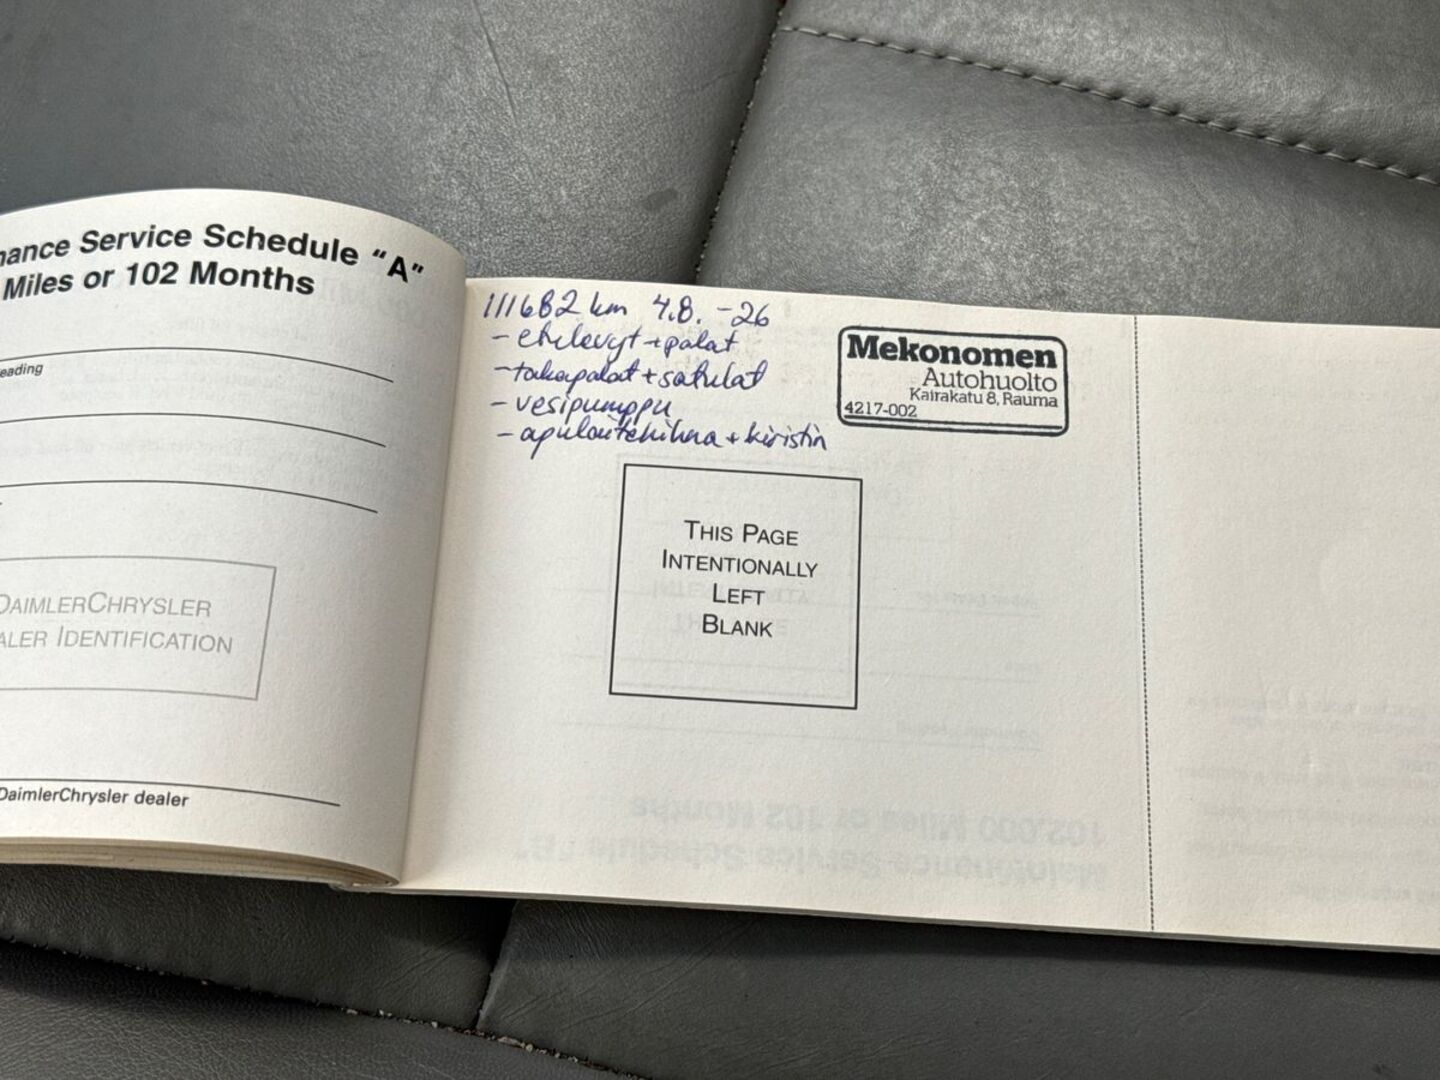 nance Service Schedule "A"
Miles or 102 Months
eading
DAIMLERCHRYSLER
ALER IDENTIFICATION
DaimlerChrysler dealer
111682 km 4.8. -26
- etulevyt + palat
- takapalat + satulat
- vesipumppu
- apulaitehihna + kiristin
Mekonomen
Autohuolto
Kairakatu 8, Rauma
4217-002
THIS PAGE
INTENTIONALLY
LEFT
BLANK
102,000 Miles or 102 Months
Maintenance Service Schedule "B"